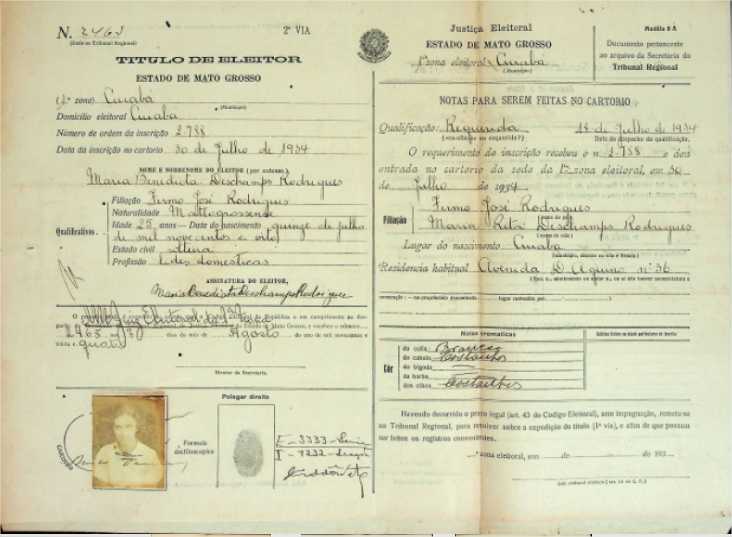 N. 2463 2ª VIA
(dado ao Tribunal Regional)
TITULO DE ELEITOR
ESTADO DE MATO GROSSO
(1ª zona) Cuiabá
(Municipio)
Domicilio eleitoral Cuiaba
Número de ordem da inscrição 2.788
Data da inscrição no cartorio 30 de Julho de 1934
NOME E SOBRENOME DO ELEITOR (por extenso)
Maria Benedicta Deschamps Rodrigues
Filiação Firmo José Rodrigues
Naturalidade Mattogrossense
Qualificativos
Idade 25 anos — Data do nascimento quinze de julho
de mil nove centos e oito
Estado civil
Profissão Lides domesticas
ASSINATURA DO ELEITOR,
Maria Benedicta Deschamps Rodrigues
2463 dias do mês de Agosto do ano de mil novecentos e
trinta e quatro
Diretor da Secretaria.
Polegar direito
Formula
dactiloscopica
Justiça Eleitoral
ESTADO DE MATO GROSSO
1ª zona eleitoral Cuiabá
(Municipio)
Modêlo 3 A
Documento pertencente
ao arquivo da Secretaria do
Tribunal Regional
NOTAS PARA SEREM FEITAS NO CARTORIO
Qualificação: Requerida 18 de Julho de 1934
(ex-officio ou requerida?) Data do despacho da qualificação.
O requerimento de inscrição recebeu o n. 2.788 e deu
entrada no cartorio da sede da 1ª zona eleitoral, em 30
de Julho de 1934
Firmo José Rodrigues
Filiação
Maria Rita Deschamps Rodrigues
Lugar do nascimento Cuiabá
Residencia habitual Avenida D. Aquino nº 36
Notas cromaticas
Côr
da cutis Branca
do cabelo Castanho
do bigode
da barba
dos olhos Castanhos
Havendo decorrido o prazo legal (art. 43 do Codigo Eleitoral), sem impugnação, remeta-se
ao Tribunal Regional, para resolver sobre a expedição do titulo (1ª via), e afim de que possam
ser feitos os registros convenientes.
ª zona eleitoral, em de de 193